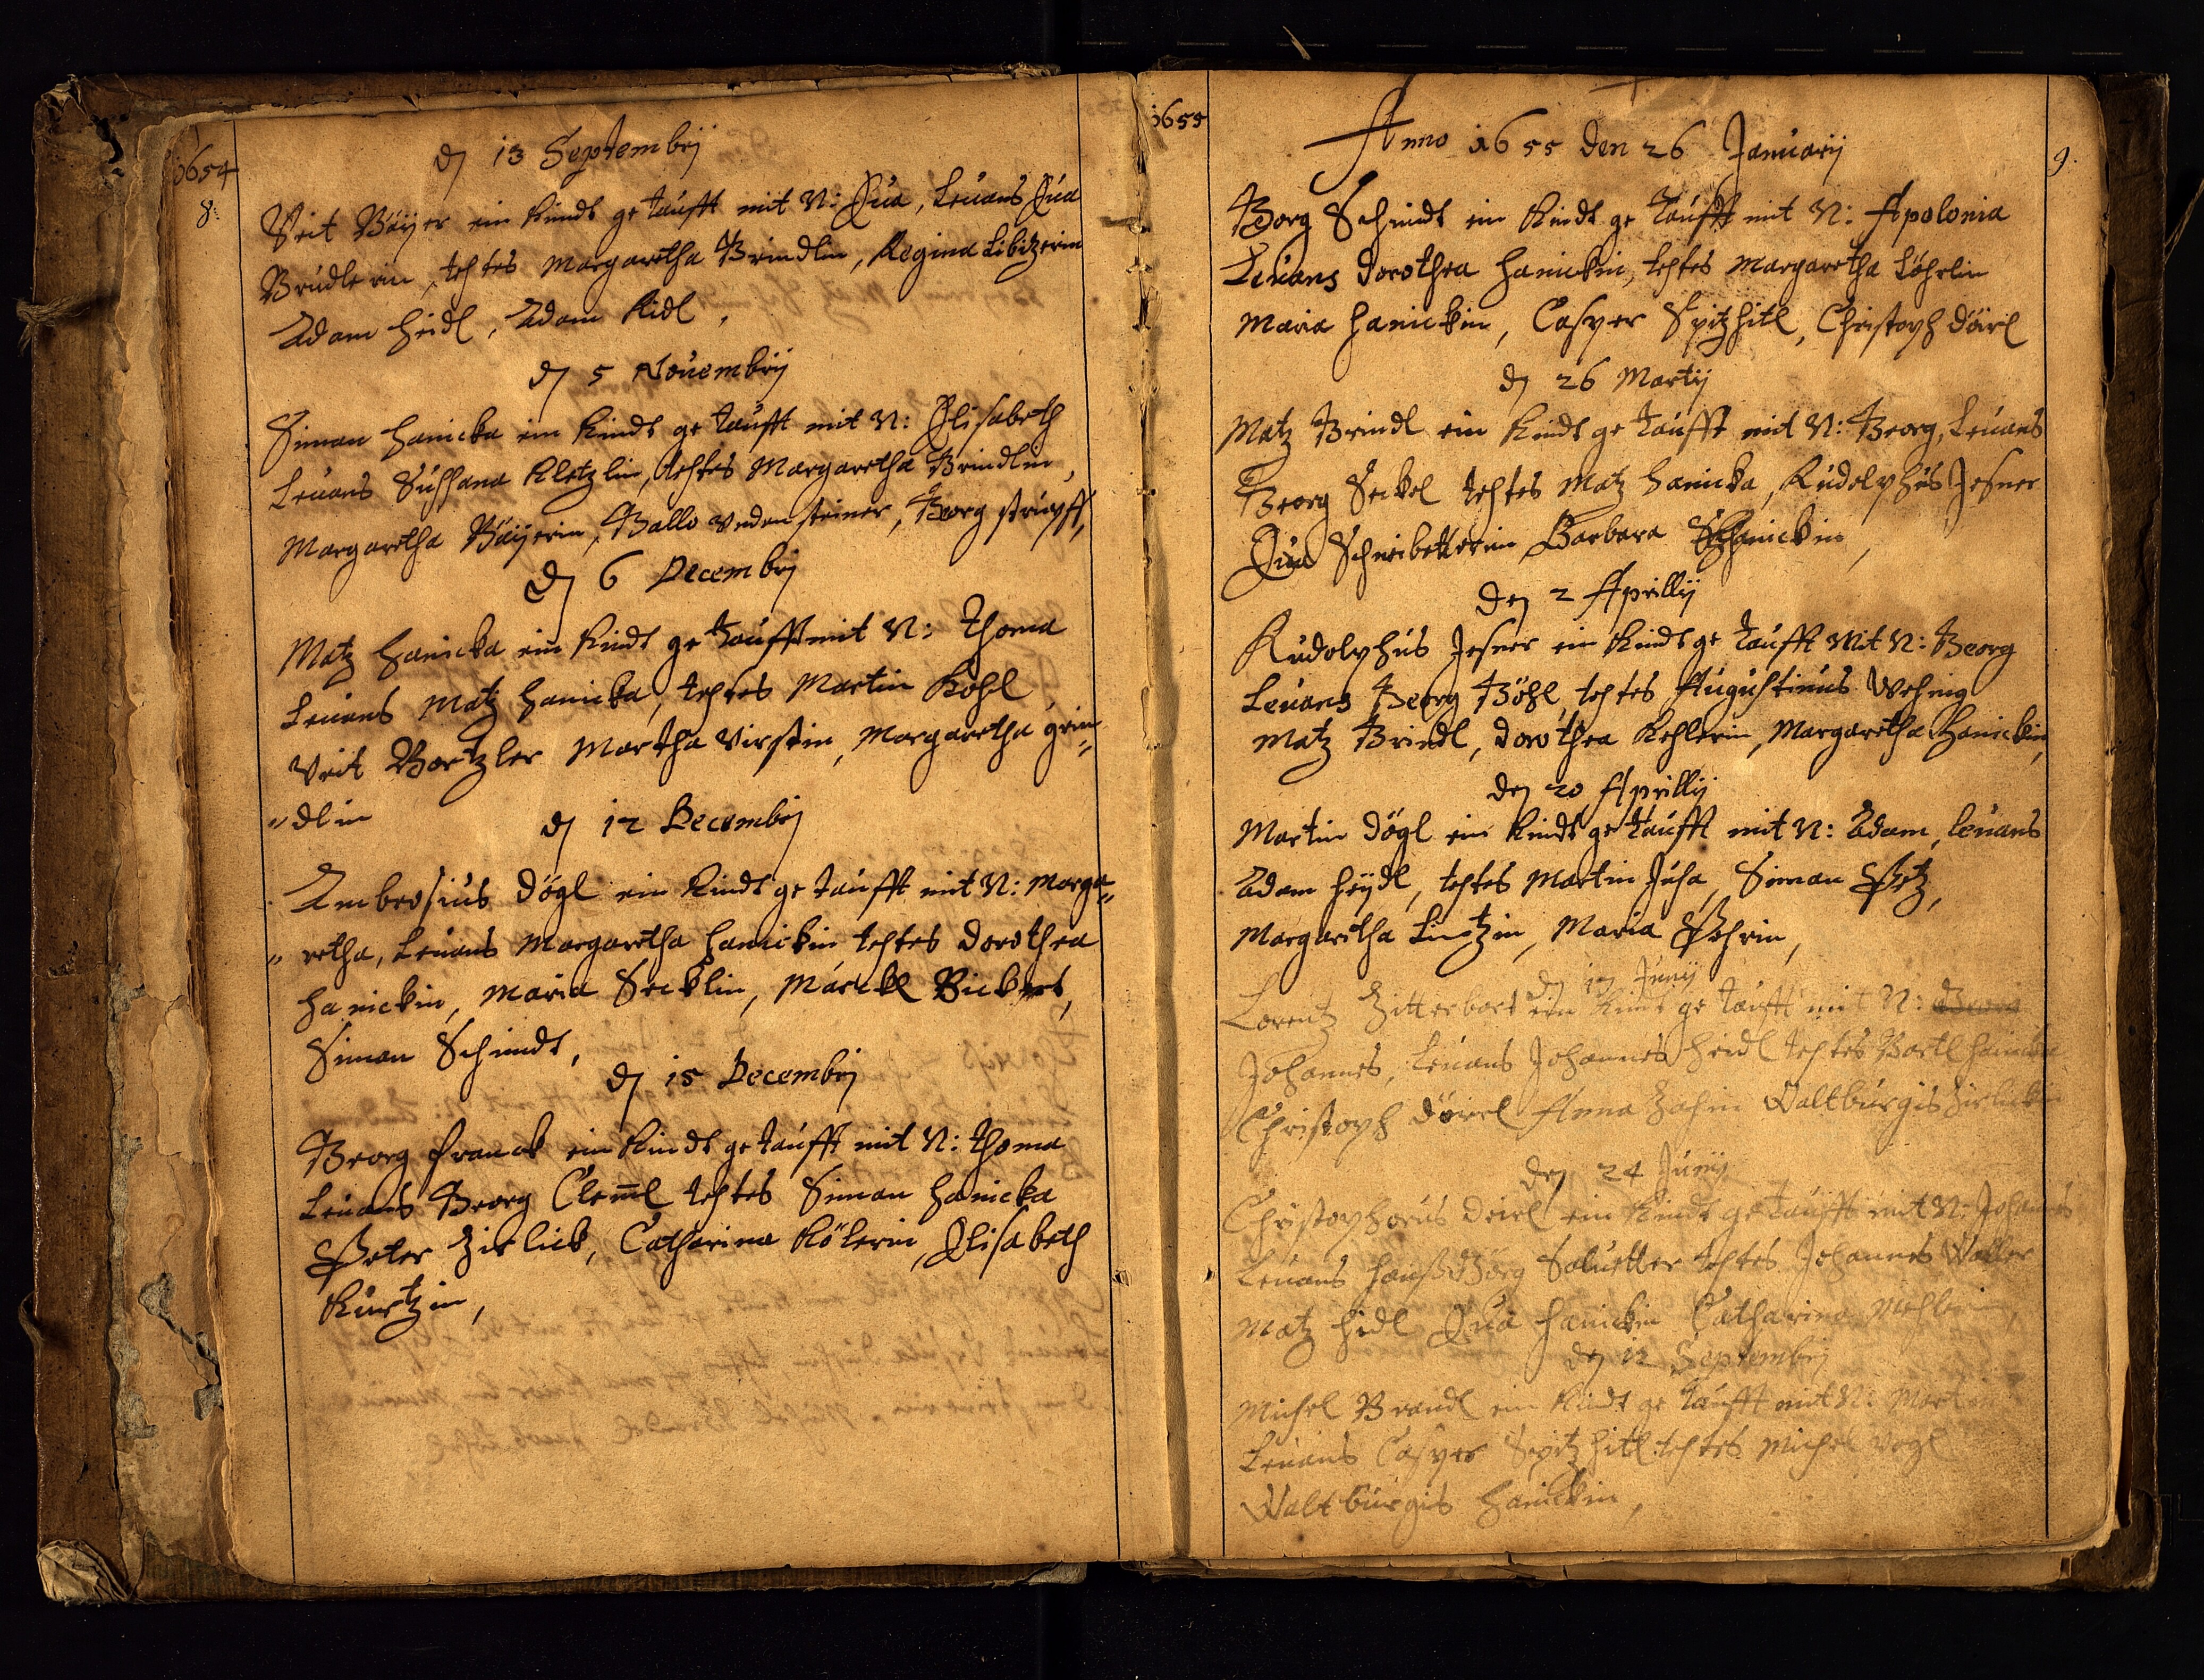 1654
8.
dẽ 13 Septembrij
Veit Baÿer ein Kindt getaufft mit N: Eua, Leuans Eua
Brudlerin, testes Margaretha Brindlin, Regina Libizerin
Adam Heidl, Adam Ridl,
dẽ 5 Nouembrij
Siman Hanicka ein Kindt getaufft mit N: Elisabeth
Leuans Sussana Kletzlin, testes Margaretha Brindlin,
Margaretha Baÿerin, Ballo vndensteiner, Georg strupff,
dẽ 6 Decembrij
Matz Hanicka ein Kindt getaufft mit N: Thoma
Leuans Matz Hanicka, testes Martin Kohl
Veit Bartzler Martha virstin, Margaretha grin=
=dlin
dẽ 12 Decembrij
Ambrosius Dögl ein Kindt getaufft mit N: Marga=
=retha, Leuans Margaretha Hanickin testes Dorothea
Hanickin, Maria Secklin, Marckl Bickert,
Siman Schmidt,
dẽ 15 Decembrij
Georg Franck ein Kindt getaufft mit N: Thoma
Leuans Georg Clem̃l testes Siman Hanicka
Peter Zirlick, Catharina Kölerin, Elisabeth
Kurtzin,
1655
9.
Anno 1655 den 26 Januarij
Georg Schmidt ein Kindt getaufft mit N: Apolonia
Leuans Dorothea Hanickin, testes Margaretha Löhrlin
Maria Hanickin, Casper Spitzhitl, Christoph Dörl
dẽ 26 Martij
Matz Brindl ein Kindt getaufft mit N: Georg, Leuans
Georg Seckel testes Matz Hanicka, Rudolphus Jesner
Eua Schreibetterin Barbara Hanickin,
den 2 Aprillij
Rudolphus Jesner ein Kindt getaufft Mit N: Georg
Leuans Georg Böhl, testes Augustinus Wehing
Matz Brindl, Dorothea Kehlerin, Margaretha Hanickin,
den 20 Aprillij
Martin Dögl ein Kindt getaufft mit N: Adam, Leuans
Adam Heÿdl, testes Martin Juha, Siman Petz,
Margaritha Lintzin, Maria Pehrin,
dẽ 17 Junij
Lorentz Zitterbart ein Kindt getaufft mit N: Georg
Johannes, Leuans Johannes Heidl testes Bartl Hanicka
Christoph Dörrl Anna Zahin Waltburgis Zirlickin
den 24 Junij
Christophorus Deirl ein Kindt getaufft mit N: Johannes
Leuans Hanß Görg Salutter testes Johannes Waller
Matz Hidl Eua Hanickin Catharina Mehlerin,
den 12 Septembrij
Michel Brandl ein Kindt getaufft mit N: Martin
Leuans Casper Spitzhitl testes Michel Vogl
Waltburgis Hanickin,